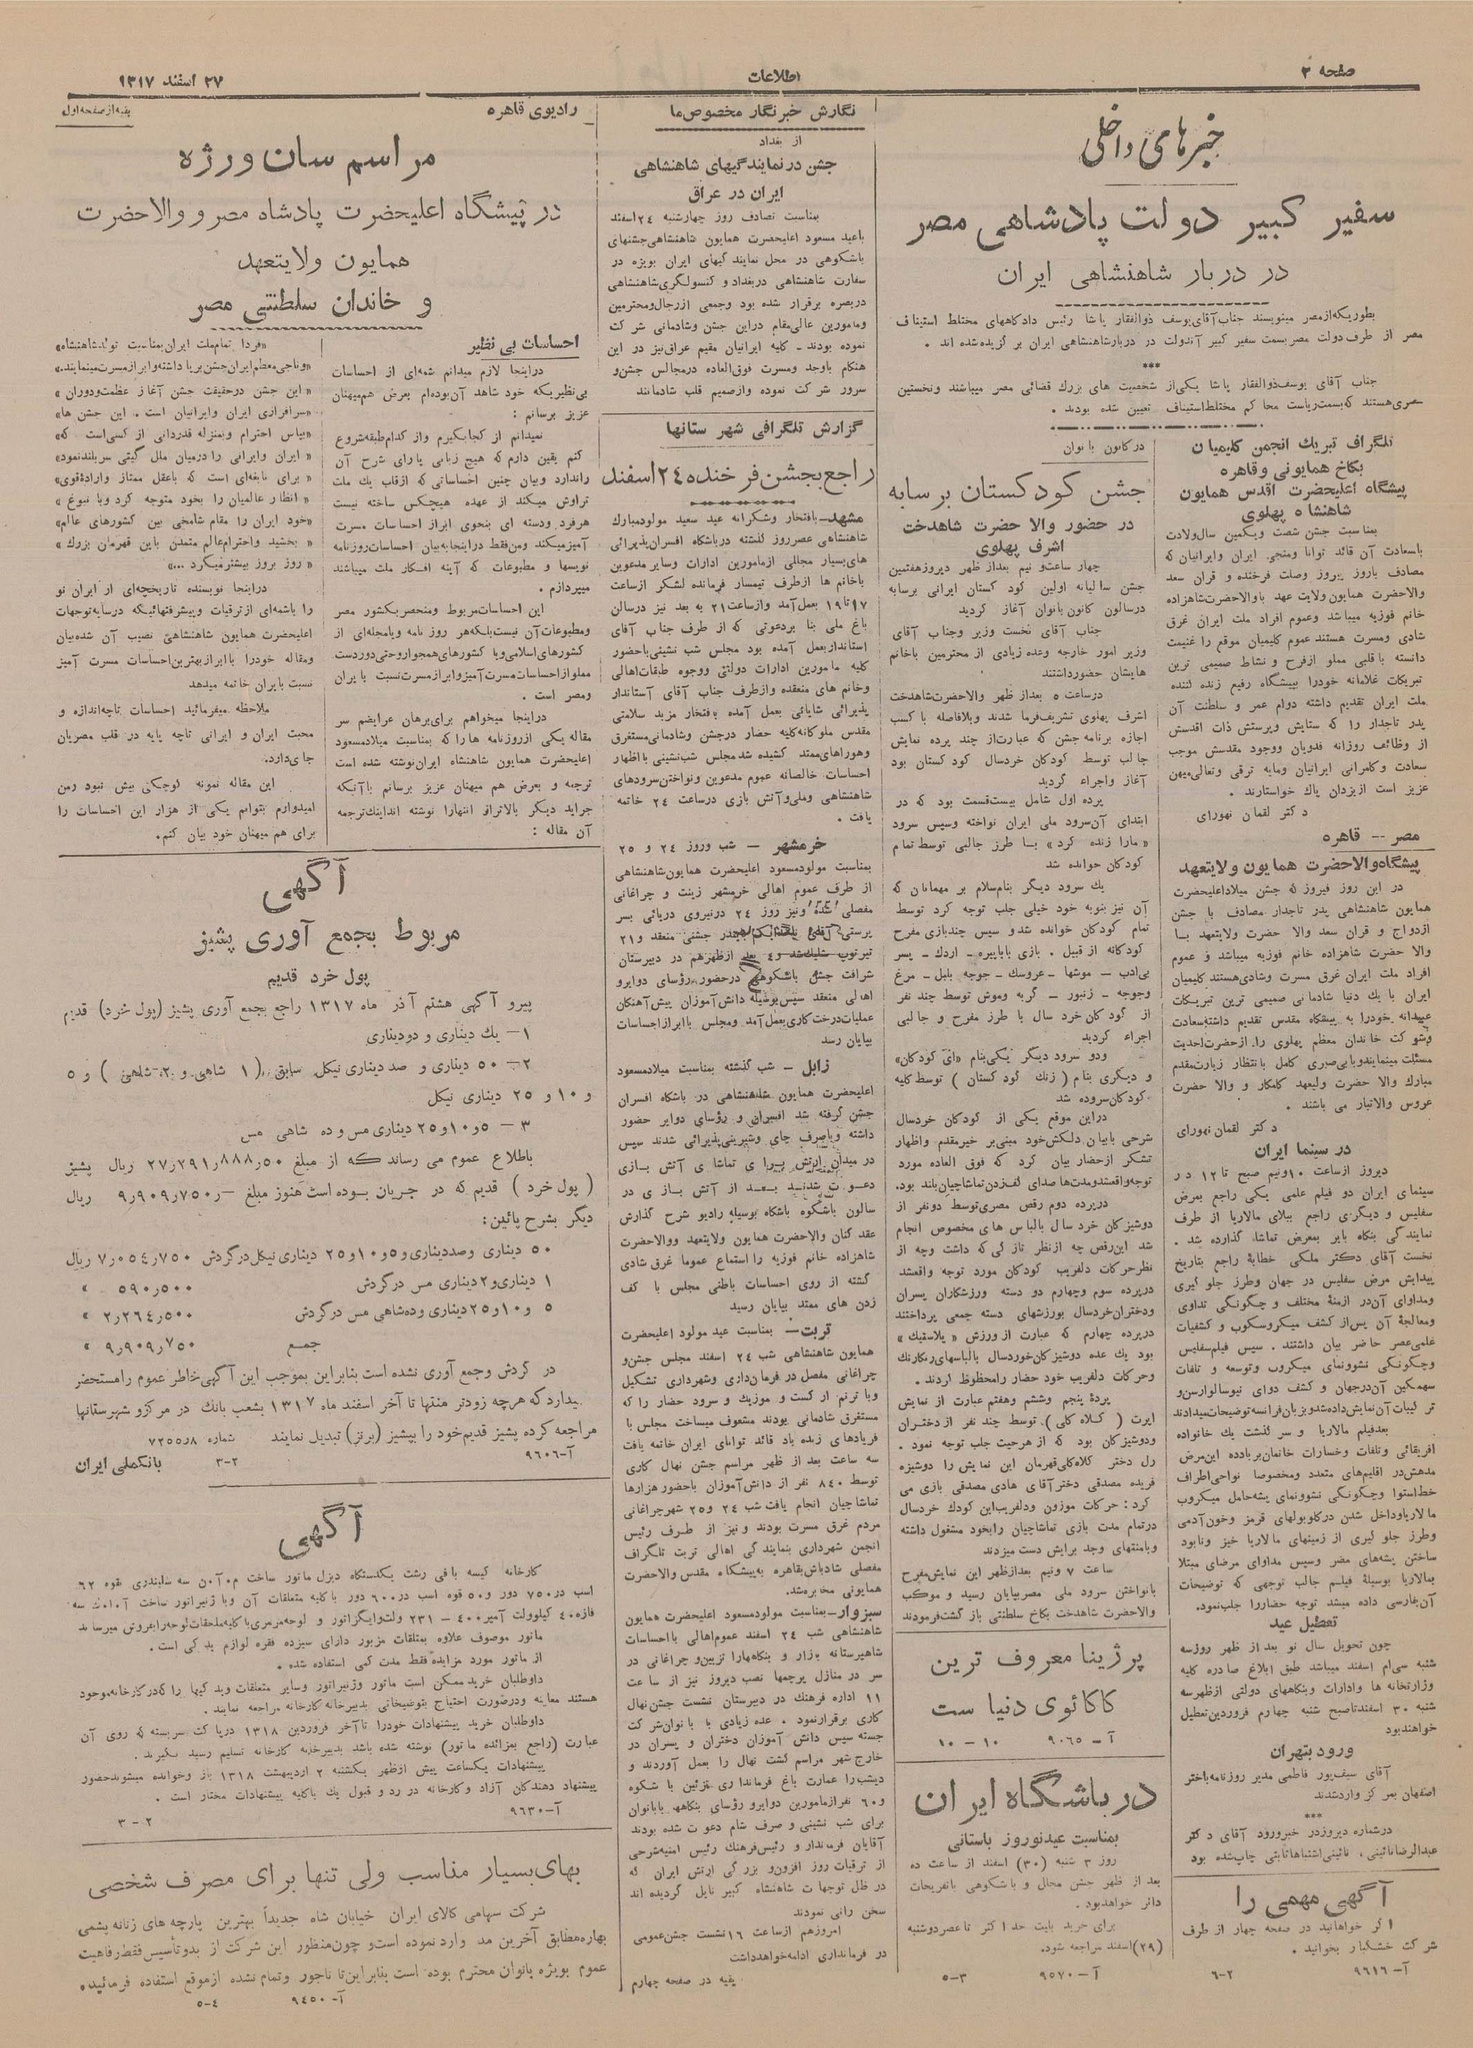 صفحه ۲
اطلاعات
۲۷ اسفند ۱۳۱۷
خبرهای داخلی
سفیر کبیر دولت پادشاهی مصر
در دربار شاهنشاهی ایران
بطوریکه از مصر مینویسند جناب آقای یوسف ذوالفقار پاشا رئیس دادگاههای مختلط استیناف
مصر از طرف دولت مصر بسمت سفیر کبیر آندولت در دربار شاهنشاهی ایران بر گزیده شده اند .
***
جناب آقای یوسف ذوالفقار پاشا یکی از شخصیت های بزرك قضائی مصر میباشند و نخستین
مصری هستند که بسمت ریاست محاکم مختلط استیناف تعیین شده بودند .
تلگراف تبریك انجمن کلیمیان
بکاخ همایونی و قاهره
پیشگاه اعلیحضرت اقدس همایون
شاهنشاه پهلوی
بمناسبت جشن شصت و یکمین سال ولادت
باسعادت آن قائد توانا و منجی ایران و ایرانیان که
مصادف با روز پیروز وصلت فرخنده و قران سعد
والاحضرت همایون ولایت عهد با والاحضرت شاهزاده
خانم فوزیه میباشد و عموم افراد ملت ایران غرق
شادی و مسرت هستند عموم کلیمیان موقع را غنیمت
دانسته با قلبی مملو از فرح و نشاط صمیمی ترین
تبریکات غلامانه خودرا به پیشگاه رفیع زنده کننده
ملت ایران تقدیم داشته دوام عمر و سلطنت آن
پدر تاجدار را که ستایش و پرستش ذات اقدسش
از وظائف روزانه فدویان و وجود مقدسش موجب
سعادت و کامرانی ایرانیان و مایه ترقی و تعالی میهن
عزیز است از یزدان پاك خواستارند .
دکتر لقمان نهورای
مصر -- قاهره
پیشگاه والاحضرت همایون ولایتعهد
در این روز فیروز که جشن میلاد اعلیحضرت
همایون شاهنشاهی پدر تاجدار مصادف با جشن
ازدواج و قران سعد والا حضرت ولایتعهد بـا
والا حضرت شاهزاده خانم فوزیه میباشد و عموم
افراد ملت ایران غرق مسرت و شادی هستند کلیمیان
ایران با یك دنیا شادمانی صمیمی ترین تبریکات
عبیدانه خودرا به پیشگاه مقدس تقدیم داشته سعادت
و شوکت خاندان معظم پهلوی را از حضرت احدیت
مسئلت مینمایند و با بی صبری کامل با نتظار زیارت مقدم
مبارك والا حضرت ولیعهد کامکار و والا حضرت
عروس والاتبار می باشند .
دکتر لقمان نهورای
در سینما ایران
دیروز از ساعت ۱۰ و نیم صبح تا ۱۲ در
سینمای ایران دو فیلم علمی یکی راجع بمرض
سفلیس و دیگری راجع ببلای مالاریا از طرف
نمایندگی بنگاه بایر بمعرض تماشا گذارده شد .
نخست آقای دکتر ملکی خطابهٔ راجع بتاریخ
پیدایش مرض سفلیس در جهان و طرز جلوگیری
و مداوای آن در ازمنهٔ مختلف و چگونگی تداوی
و معالجهٔ آن پس از کشف میکروسکوپ و کشفیات
علمی عصر حاضر بیان داشتند . سپس فیلم سفلیس
و چگونگی نشوونمای میکروب و توسعه و تلفات
سهمگین آن در جهان و کشف دوای نیوسالوارسن و
ترکیبات آن نمایش داده شد و بزبان فرانسه توضیحات میدادند
بعد فیلم مالاریا و سر گذشت یك خانواده
افریقائی و تلفات و خسارات خانمان بر باده این مرض
مدهش در اقلیم های متعدد و مخصوصا نواحی اطراف
خط استوا و چگونگی نشوونمای پشه حامل میکروب
مالاریا و داخل شدن در گلوبولهای قرمز و خون آدمی
و طرز جلو گیری از زمینهای مالاریا خیز و نابود
ساختن پشه های مضر و سپس مداوای مرضای مبتلا
بمالاریا بوسیلهٔ فیلم جالب توجهی که توضیحات
آن بفارسی داده میشد توجه حضار را جلب نمود.
تعطیل عید
چون تحویل سال نو بعد از ظهر روز سه
شنبه سی ام اسفند میباشد طبق ابلاغ صادره کلیه
وزارتخانه ها و ادارات و بنگاههای دولتی از ظهر سه
شنبه ۳۰ اسفند تا صبح شنبه چهارم فروردین تعطیل
خواهند بود
ورود بتهران
آقای سیف پور فاطمی مدیر روزنامه باختر
اصفهان بمرکز وارد شدند
***
در شماره دیروز در خبر ورود آقای دکتر
عبدالرضا نائینی ، نائینی اشتباها ثابتی چاپ شده بود
آگهی مهمی را
اگر خواهانید در صفحه چهار از طرف
شرکت خشکبار بخوانید .
آ- ۹۶۱۶ ۲-۶
در کانون بانوان
جشن کودکستان برسابه
در حضور والا حضرت شاهدخت
اشرف پهلوی
چهار ساعت و نیم بعد از ظهر دیروز هفتمین
جشن سالیانه اولین کودکستان ایرانی برسابه
در سالون کانون بانوان آغاز گردید
جناب آقای نخست وزیر و جناب آقای
وزیر امور خارجه و عده زیادی از محترمین با خانم
هایشان حضور داشتند
در ساعت ۵ بعد از ظهر والاحضرت شاهدخت
اشرف پهلوی تشریف فرما شدند و بلافاصله با کسب
اجازه برنامه جشن که عبارت از چند پرده نمایش
جالب توسط کودکان خردسال کودکستان بود
آغاز و اجراء گردید
پرده اول شامل بیست قسمت بود که در
ابتدای آن سرود ملی ایران نواخته و سپس سرود
« مارا زنده کرد » با طرز جالبی توسط تمام
کودکان خوانده شد
یك سرود دیگر بنام سلام بر مهمانان که
آن نیز بنوبه خود خیلی جلب توجه کرد توسط
تمام کودکان خوانده شد و سپس چند بازی مفرح
کودکانه از قبیل . بازی بابا پیره - اردك - پسر
بی ادب - موشها - عروسك - جوجه بلبل - مرغ
و جوجه - زنبور - گربه و موش توسط چند نفر
از کودکان خرد سال با طرز مفرح و جالبی
اجراء گردید
و دو سرود دیگر یکی بنام «ای کودکان»
و دیگری بنام ( زنگ کودکستان ) توسط کلیه
کودکان سروده شد
در این موقع یکی از کودکان خردسال
شرحی با بیان دلکش خود مبنی بر خیر مقدم و اظهار
تشکر از حضار بیان کرد که فوق العاده مورد
توجه واقعشد و مدت ها صدای کف زدن تماشاچیان بلند بود.
در پرده دوم رقص مصری توسط دو نفر از
دوشیزکان خرد سال با لباس های مخصوص انجام
شد این رقص چه از نظر نازکی که داشت و چه از
نظر حرکات دلفریب کودکان مورد توجه واقعشد
در پرده سوم و چهارم دو دسته ورزشکاران پسران
و دختران خردسال بورزشهای دسته جمعی پرداختند
در پرده چهارم که عبارت از ورزش « پلاستیك »
بود یك عده دوشیزکان خوردسال با لباسهای رنگارنك
و حرکات دلفریب خود حضار را محظوظ کردند .
پردهٔ پنجم و ششم و هفتم عبارت از نمایش
اپرت ( کلاه کلی ). توسط چند نفر از دختران
و دوشیزکان بود که از هر حیث جلب توجه نمود .
رل دختر کلاه کلی قهرمان این نمایش را دوشیزه
فریده مصدقی دختر آقای هادی مصدقی بازی می
کرد : حرکات موزون و دلفریب این کودك خردسال
در تمام مدت بازی تماشاچیان را بخود مشغول داشته
و با منتهای وجد برایش دست میزدند
ساعت ۷ و نیم بعد از ظهر این نمایش مفرح
با نواختن سرود ملی مصر بپایان رسید و موکب
والاحضرت شاهدخت بکاخ سلطنتی بازگشت فرمودند
پرژینا معروف ترین
کاکائوی دنیا ست
آ- ۹۰۶۵ ۱۰ - ۱۰
در باشگاه ایران
بمناسبت عید نوروز باستانی
روز ۳ شنبه (۳۰) اسفند از ساعت ده
بعد از ظهر جشن مجلل و باشکوهی با تفریحات
دائر خواهد بود .
برای خرید بلیت حداکثر تا عصر دوشنبه
(۲۹) اسفند مراجعه شود.
آ- ۹۵۷۰ ۳-۵
نگارش خبرنگار مخصوص ما
از بغداد
جشن در نمایندگیهای شاهنشاهی
ایران در عراق
بمناسبت تصادف روز چهارشنبه ۲۴ اسفند
با عید مسعود اعلیحضرت همایون شاهنشاهی جشنهای
باشکوهی در محل نمایندگیهای ایران بویژه در
سفارت شاهنشاهی در بغداد و کنسولگری شاهنشاهی
در بصره برقرار شده بود و جمعی از رجال و محترمین
و مامورین عالی مقام در این جشن و شادمانی شرکت
نموده بودند - کلیه ایرانیان مقیم عراق نیز در این
هنگام با وجد و مسرت فوق العاده در مجالس جشن و
سرور شرکت نموده و از صمیم قلب شادمانند
گزارش تلگرافی شهر ستانها
راجع بجشن فرخنده ۲۴ اسفند
مشهد- با افتخار و شکرانه عید سعید مولود مبارك
شاهنشاهی عصر روز گذشته در باشگاه افسران پذیرائی
های بسیار مجللی از مامورین ادارات و سایر مدعوین
با خانم ها از طرف تیمسار فرمانده لشکر از ساعت
۱۷ تا ۱۹ بعمل آمد و از ساعت ۲۱ به بعد نیز در سالن
باغ ملی بنا بر دعوتی که از طرف جناب آقای
استاندار بعمل آمده بود مجلس شب نشینی با حضور
کلیه مامورین ادارات دولتی و وجوه طبقات اهالی
و خانم های منعقده و از طرف جناب آقای استاندار
پذیرائی شایانی بعمل آمده با فتخار مزید سلامتی
مقدس ملوکانه کلیه حضار در جشن و شادمانی مستغرق
و هوراهای ممتد کشیده شد مجلس شب نشینی با اظهار
احساسات خالصانه عموم مدعوین و نواختن سرودهای
شاهنشاهی و ملی و آتش بازی در ساعت ۲۴ خاتمه
یافت .
خرمشهر - شب و روز ۲۴ و ۲۵
بمناسبت مولود مسعود اعلیحضرت همایون شاهنشاهی
از طرف عموم اهالی خرمشهر زینت و چراغانی
مفصلی شده و نیز روز ۲۴ در نیروی دریائی بسر
پرستی آقای جشنی منعقد و ۲۱
تیر توپ شلیك شد و ۴ بعد از ظهر هم در دبیرستان
شرافت جشن باشکوهی در حضور رؤسای دوایر و
اهالی منعقد سپس بوسیله دانش آموزان پیش آهنگان
عملیات درخت کاری بعمل آمد و مجلس با ابراز احساسات
بپایان رسد
زابل - شب گذشته بمناسبت میلاد مسعود
اعلیحضرت همایون شاهنشاهی در باشگاه افسران
جشن گرفته شد افسران و رؤسای دوایر حضور
داشته و با صرف چای و شیرینی پذیرائی شدند سپس
در میدان ارتش برای تماشای آتش بازی
دعوت شدند بعد از آتش بازی در
سالون باشکوه باشگاه بوسیله رادیو شرح گذارش
عقد کنان والاحضرت همایون ولایتعهد و والاحضرت
شاهزاده خانم فوزیه را استماع عموما غرق شادی
گشته از روی احساسات باطنی مجلس با کف
زدن های ممتد بپایان رسید
تربت- بمناسبت عید مولود اعلیحضرت
همایون شاهنشاهی شب ۲۴ اسفند مجلس جشن و
چراغانی مفصل در فرمانداری و شهرداری تشکیل
و با ترنم ارکست و موزیك و سرود حضار را که
مستغرق شادمانی بودند مشعوف میساخت مجلس با
فریادهای زنده باد قائد توانای ایران خاتمه یافت
سه ساعت بعد از ظهر مراسم جشن نهال کاری
توسط ۸۴۰ نفر از دانش آموزان با حضور هزارها
تماشاچیان انجام یافت شب ۲۴ و ۲۵ شهر چراغانی
مردم غرق مسرت بودند و نیز از طرف رئیس
انجمن شهرداری بنمایندگی اهالی تربت تلگراف
مفصلی شادباش بقاهره به پیشگاه مقدس والاحضرت
همایونی مخابره شد.
سبزوار- بمناسبت مولود مسعود اعلیحضرت همایون
شاهنشاهی شب ۲۴ اسفند عموم اهالی با احساسات
شاهپرستانه بازار و بنگاهها را تزیین و چراغانی در
سر در منازل پرچمها نصب دیروز نیز از ساعت
۱۱ اداره فرهنك در دبیرستان نشست جشن نهال
کاری برقرار نمود . عده زیادی با بانوان شرکت
جسته سپس دانش آموزان دختران و پسران در
خارج شهر مراسم کشت نهال را بعمل آوردند و
دیشب را عمارت باغ فرمانداری تزئین با شکوه
و ۶۰ نفر از مامورین دوایر و رؤسای بنگاهها با بانوان
برای شب نشینی و صرف شام دعوت شده بودند
آقایان فرماندار و رئیس فرهنك رئیس امنیه شرحی
از ترقیات روز افزون و بزرگی ارتش ایران که
در ظل توجهات شاهنشاه کبیر نایل گردیده اند
سخن رانی نمودند
امروز هم از ساعت ۱۶ نشست جشن عمومی
در فرمانداری ادامه خواهد داشت
بقیه در صفحه چهارم
رادیوی قاهره
بقیه از صفحه اول
مراسم سان ورژه
در پیشگاه اعلیحضرت پادشاه مصر و والاحضرت
همایون ولایتعهد
و خاندان سلطنتی مصر
احساسات بی نظیر
در اینجا لازم میدانم شمه ای از احساسات
بی نظیریکه خود شاهد آن بوده ام بعرض هم میهنان
عزیز برسانم :
نمیدانم از کجا بگیرم و از کدام طبقه شروع
کنم یقین دارم که هیچ زبانی یارای شرح آن
راندارد و بیان چنین احساساتی که از قلب یك ملت
تراوش میکند از عهده هیچکس ساخته نیست
هر فرد و دسته ای بنحوی ابراز احساسات مسرت
آمیز میکند و من فقط در اینجا به بیان احساسات روزنامه
نویسها و مطبوعات که آینه افکار ملت میباشند
میپردازم .
این احساسات مربوط و منحصر بکشور مصر
و مطبوعات آن نیست بلکه هر روز نامه و یا مجله ای از
کشورهای اسلامی و یا کشورهای همجوار و حتی دوردست
مملو از احساسات مسرت آمیز و ابراز مسرت نسبت با یران
و مصر است .
در اینجا میخواهم برای برهان عرایضم سر
مقاله یکی از روزنامه ها را که بمناسبت میلاد مسعود
اعلیحضرت همایون شاهنشاه ایران نوشته شده است
ترجمه و بعرض هم میهنان عزیز برسانم با آنکه
جراید دیگر بالاتر از انتها را نوشته اند اینك ترجمه
آن مقاله :
«فردا تمام ملت ایران بمناسبت تولد شاهنشاه»
«و ناجی معظم ایران جشن بر پا داشته و ابراز مسرت مینمایند.»
« این جشن در حقیقت جشن آغاز عظمت و دوران »
«سرافرازی ایران و ایرانیان است . این جشن ها»
«بپاس احترام و بمنزله قدردانی از کسی است که»
« ایران و ایرانی را در میان ملل گیتی سربلند نمود»
« برای نابغه ای است که با عقل ممتاز و اراده قوی»
« انظار عالمیان را بخود متوجه کرد و با نبوغ »
«خود ایران را مقام شامخی بین کشورهای عالم»
« بخشید و احترام عالم متمدن باین قهرمان بزرك »
« روز بروز بیشتر میگردد ...»
در اینجا نویسنده تاریخچه ای از ایران نو
را با شمه ای از ترقیات و پیشرفتهائیکه در سایه توجهات
اعلیحضرت همایون شاهنشاهی نصیب آن شده بیان
و مقاله خود را با ابراز بهترین احساسات مسرت آمیز
نسبت با یران خاتمه میدهد
ملاحظه میفرمائید احساسات تا چه اندازه و
محبت ایران و ایرانی تا چه پایه در قلب مصریان
جای دارد.
این مقاله نمونه کوچکی بیش نبود و من
امیدوارم بتوانم یکی از هزار این احساسات را
برای هم میهنان خود بیان کنم.
آگهی
مربوط بجمع آوری پشیز
پول خرد قدیم
پیرو آگهی هشتم آذر ماه ۱۳۱۷ راجع بجمع آوری پشیز (پول خرد) قدیم
۱- یك دیناری و دو دیناری
۲- ۵۰ دیناری و صد دیناری نیکل سابق ( ۱ شاهی و ۲ شاهی ) و ۵
و ۱۰ و ۲۵ دیناری نیکل
۳ - ۵ و ۱۰ و ۲۵ دیناری مس و ده شاهی مس
باطلاع عموم می رساند که از مبلغ ۲۷٫۲۹۱٫۸۸۸٫۵۰ ریال پشیز
( پول خرد ) قدیم که در جریان بوده است هنوز مبلغ -٫۹٫۹۰۹٫۷۵۰ ریال
دیگر بشرح پائین:
۵۰ دیناری و صد دیناری و ۵ و ۱۰ و ۲۵ دیناری نیکل در گردش ۷٫۰۵۴٫۷۵۰ ریال
۱ دیناری و ۲ دیناری مس در گردش ۵۹۰٫۵۰۰ »
۵ و ۱۰ و ۲۵ دیناری و ده شاهی مس در گردش ۲٫۲۶۴٫۵۰۰ »
جمع ۹٫۹۰۹٫۷۵۰ »
در گردش و جمع آوری نشده است بنابراین بموجب این آگهی خاطر عموم را مستحضر
میدارد که هر چه زودتر منتها تا آخر اسفند ماه ۱۳۱۷ بشعب بانك در مرکز و شهرستانها
مراجعه کرده پشیز قدیم خود را بپشیز (برنز) تبدیل نمایند شماره ۷۲۵۵٫۸
آ-۹۶۰۶ ۲-۳ بانك ملی ایران
آگهی
کارخانه کیسه بافی رشت یکدستگاه دیزل ماتور ساخت م.آ.ن سه سلیندری قوه ۶۲
اسب در ۷۵۰ دور و ۵۰ قوه اسب در ۶۰۰ دور با کلیه متعلقات آن و با ژنراتور ساخت سه
فازه ۴۰ کیلوولت آمپر ۴۰۰ - ۲۳۱ ولت و ایگزاتور و لوحه مرمری با کلیه ملحقات لوحه را بفروش میرساند
ماتور موصوف علاوه بمتلقات مزبور دارای سیزده فقره لوازم یدکی است .
از ماتور مورد مزایده فقط مدت کمی استفاده شده .
داوطلبان خرید ممکن است ماتور و ژنراتور و سایر متعلقات و ید کیها را که در کارخانه موجود
هستند معاینه و در صورت احتیاج بتوضیحاتی بدبیرخانه کارخانه مراجعه نمایند .
داوطلبان خرید پیشنهادات خودرا تا آخر فروردین ۱۳۱۸ در پاکت سربسته که روی آن
عبارت (راجع بمزائده ماتور) نوشته شده باشد بدبیرخانه کارخانه تسلیم رسید بگیرند .
پیشنهادات یکساعت پیش از ظهر یکشنبه ۲ اردیبهشت ۱۳۱۸ باز و خوانده میشوند حضور
پیشنهاد دهندگان آزاد و کارخانه در رد و قبول یك یا کلیه پیشنهادات مختار است .
آ-۹۶۳۰ ۲-۳
بهای بسیار مناسب ولی تنها برای مصرف شخصی
شرکت سهامی کالای ایران خیابان شاه جدیداً بهترین پارچه های زنانه پشمی
بهاره مطابق آخرین مد وارد نموده است و چون منظور این شرکت از بدو تأسیس فقط رفاهیت
عموم بویژه بانوان محترم بوده است بنابراین تا ناجور و تمام نشده از موقع استفاده فرمائید
آ- ۹۴۵۰ ۴-۵